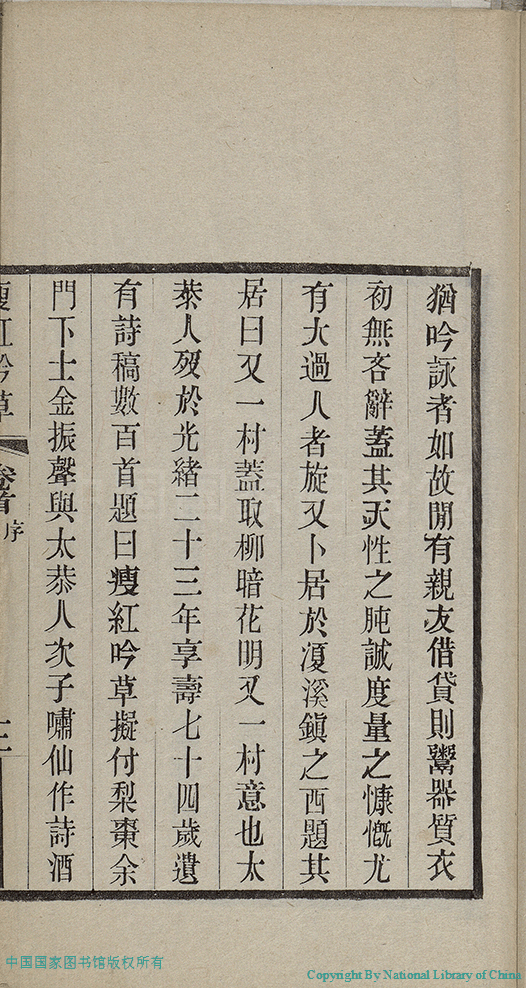 猶吟詠者如故閒有親友借貸則鬻器質衣
初無吝辭蓋其天性之肫誠度量之慷慨尤
有大過人者旋又卜居於溭溪鎮之西題其
居曰又一村蓋取柳暗花明又一村意也太
恭人歿於光緒二十三年享壽七十四歲遺
有詩稿數百首題曰瘦紅吟草擬付梨棗余
門下士金振聲與太恭人次子嘯仙作詩酒
瘦紅吟草
卷首
序
中国国家图书馆版权所有
Copyright By National Library of China